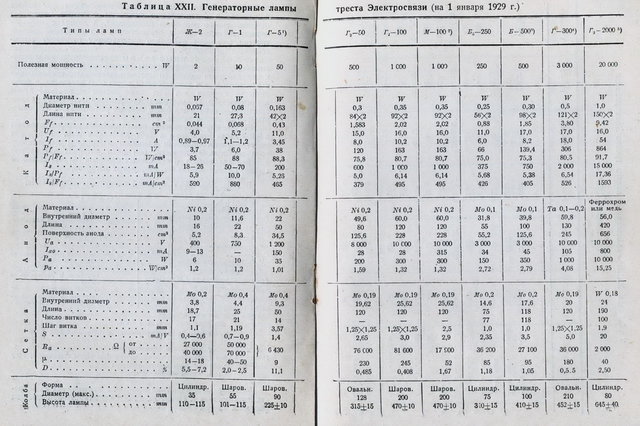 Таблица XXII. Генераторные лампы треста Электросвязи (на 1 января 1929 г.)
Типы ламп Ж—2 Г—1 Г—5 Г₂—50 Г₂—100 М—100 Б₂—250 Б—500 Г—300 Г₂—2000
Полезная мощность W 2 10 50 500 1 000 1 000 250 500 3 000 20 000
Катод
Материал W W W W W W W W W W
Диаметр нити mm 0,057 0,08 0,163 0,3 0,35 0,35 0,25 0,30 0,5 1,0
Длина нити mm 21 27,3 42×2 84×2 92×2 92×2 56×2 98×2 121×2 150×2
Ff cm² 0,044 0,068 0,43 1,583 2,02 2,02 0,88 1,85 3,80 9,42
Uf V 4,0 5,2 11,0 15,0 16,0 16,0 11,0 17,0 17,0 16,0
If A 0,89—0,97 1,1—1,2 3,45 8,0 10,2 10,2 6,0 8,2 18,0 54
Pf W 3,7 6,0 38 120 163 163 66 139,4 306 864
Pf/Ff W/cm² 85 88 88,3 75,8 80,7 80,7 75,0 75,3 80,5 91,7
Is mA 18—26 50—70 200 600 1 000 1 000 375 750 2 000 15 000
Is/Pf mA/W 5,9 10,0 5,26 5,0 6,14 6,14 5,68 5,38 6,54 17,36
Is/Ff mA/cm² 520 880 465 379 495 495 426 405 526 1593
Анод
Материал Ni 0,2 Ni 0,2 Ni 0,2 Ni 0,2 Ni 0,2 Ni 0,2 Mo 0,1 Mo 0,1 Ta 0,1—0,2 Феррохром или медь
Внутренний диаметр mm 10 11,6 22 49,6 60,0 60,0 31,8 39,8 59,8 56,0
Длина mm 16 22 50 80 120 120 55 100 130 420
Поверхность анода cm² 5,2 8,3 34,5 125,6 228 228 55,2 125,6 245 656
Ua V 400 750 1 200 8 000 10 000 10 000 3 000 3 000 10 000 10 000
mA 9—13 — 150 28 28 315 34 45 105 800
Pa W 6 10 35 200 300 300 150 350 1 000 10 000
Pa W/cm² 1,2 1,2 1,01 1,59 1,32 1,32 2,72 2,79 4,08 15,25
Сетка
Материал Mo 0,2 Mo 0,2 Mo 0,4 Mo 0,19 Mo 0,19 Mo 0,19 Mo 0,19 Mo 0,19 Mo 0,19 W 0,18
Внутренний диаметр mm 3,8 4,4 9,3 19,62 25,62 25,62 14,6 17,6 20 24
Длина mm 18,7 25 50 120 120 120 75 118 120 190
Число витков 17 21 14 — — — 77 118 — 100
Шаг витка mm 1,1 1,19 3,57 1,25×1,25 1,25×1,25 2,5 1,0 1,0 1,25×1,25 1,9
S mA/V 0,4—0,6 0,7—0,9 1,4 2,65 3,0 2,9 2,35 3,5 5,0 20
Ra Ω от 27 000 50 000 6 430 76 000 81 600 17 900 36 200 27 100 36 000 2 000
до 40 000 70 000
μ 14—18 40—50 9 230 245 52 85 95 180 40
D % 5,5—7,2 2,0—2,5 11,1 0,485 0,408 1,67 1,18 1,05 2,50
Колба
Форма Цилиндр. Шаров. Шаров. Овальн. Шаров. Шаров. Цилиндр. Цилиндр. Овальн. Цилиндр.
Диаметр (макс.) 35 55 90 128 200 200 75 100 210 80
Высота лампы 110—115 101—115 225±10 315±15 470±10 470±10 410±15 452±15 645±40